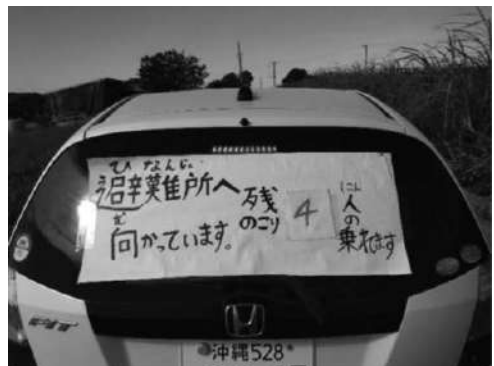 ひなんじょ
避難所へ
む
向かっています。
残
のこり
4
にん
人
の
乗れます
沖縄528